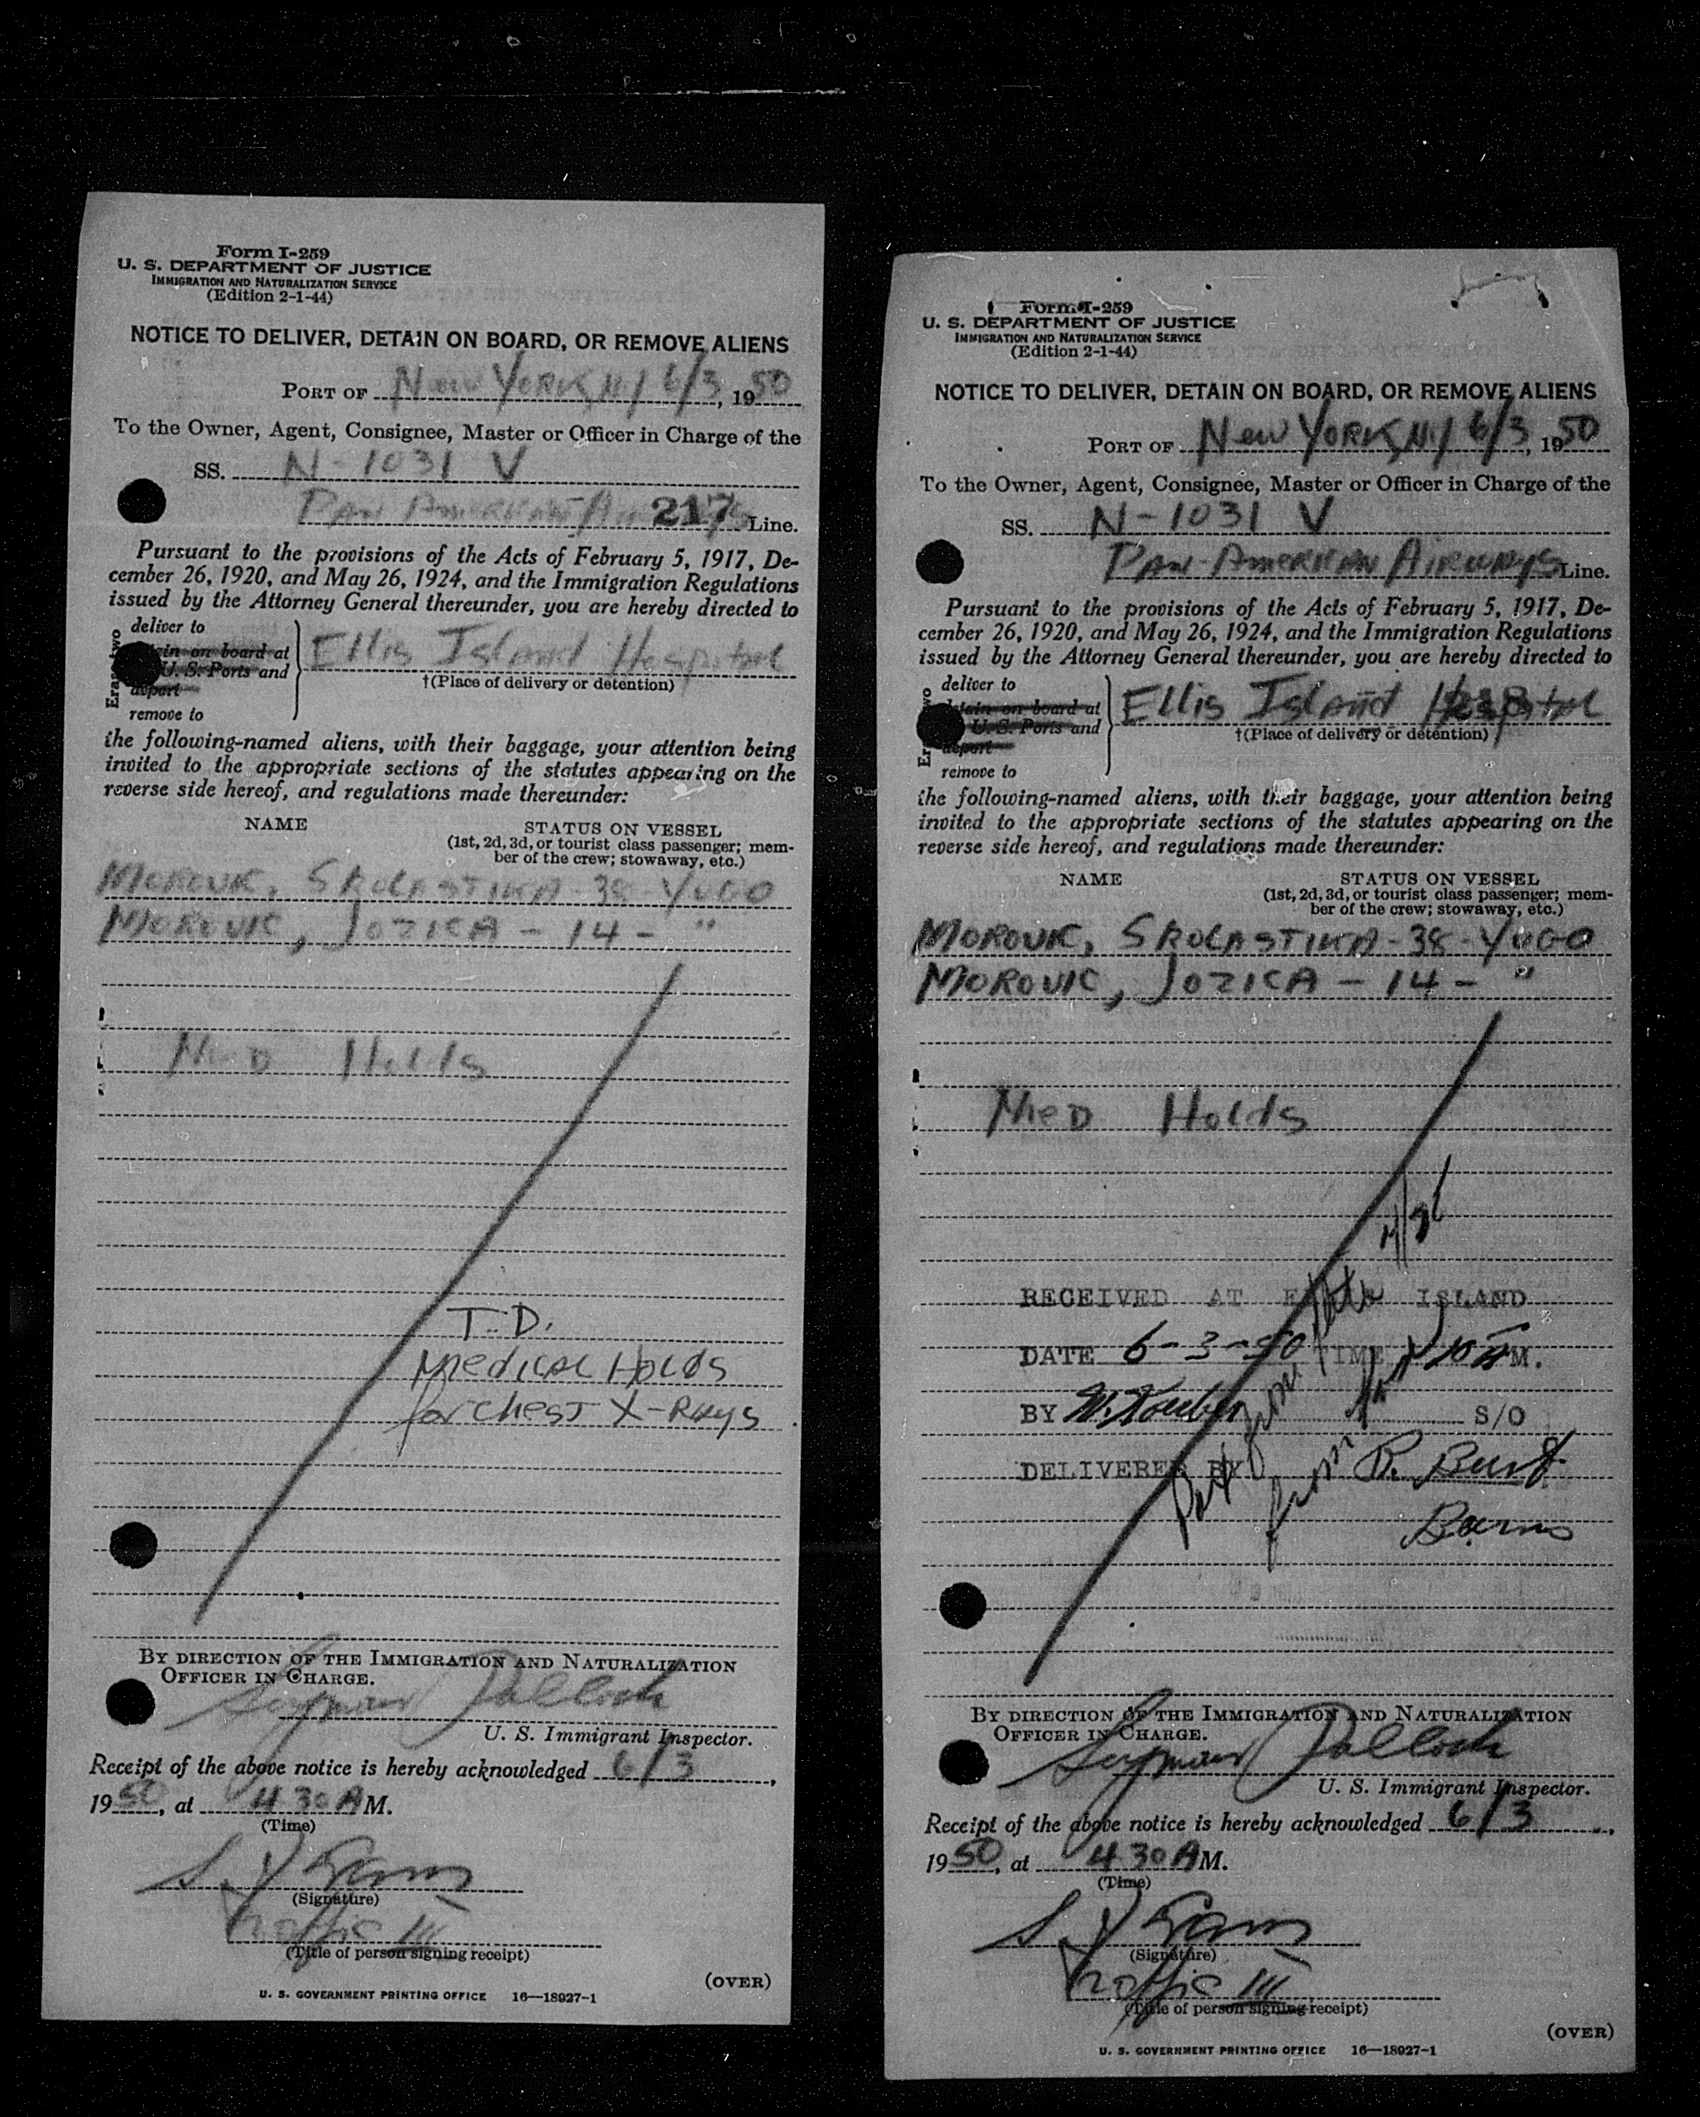 Form I-259
U. S. DEPARTMENT OF JUSTICE
IMMIGRATION AND NATURALIZATION SERVICE
(Edition 2-1-44)
NOTICE TO DELIVER, DETAIN ON BOARD, OR REMOVE ALIENS
PORT OF New YORK, N.Y 6/3, 1950
To the Owner, Agent, Consignee, Master or Officer in Charge of the
SS. N-1031 V
PAN AMERICAN AIRWAYS 217 Line.
Pursuant to the provisions of the Acts of February 5, 1917, De-
cember 26, 1920, and May 26, 1924, and the Immigration Regulations
issued by the Attorney General thereunder, you are hereby directed to
deliver to
tain on board at
U. S. Ports and
deport
remove to
Ellis Island Hospital
†(Place of delivery or detention)
the following-named aliens, with their baggage, your attention being
invited to the appropriate sections of the statutes appearing on the
reverse side hereof, and regulations made thereunder:
NAME
STATUS ON VESSEL
(1st, 2d, 3d, or tourist class passenger; mem-
ber of the crew; stowaway, etc.)
MOROVIC, SKOLASTIKA - 38 - YUGO
MOROVIC, JOZICA - 14 - "
MeD Holds
T.D.
Medical Holds
for Chest X-Rays
BY DIRECTION OF THE IMMIGRATION AND NATURALIZATION
OFFICER IN CHARGE.
Seymour Pollock
U. S. Immigrant Inspector.
Receipt of the above notice is hereby acknowledged 6/3,
1950, at 4 30 A M.
(Time)
(Signature)
Traffic III
(Title of person signing receipt)
(OVER)
U. S. GOVERNMENT PRINTING OFFICE 16—18927-1
Form I-259
U. S. DEPARTMENT OF JUSTICE
IMMIGRATION AND NATURALIZATION SERVICE
(Edition 2-1-44)
NOTICE TO DELIVER, DETAIN ON BOARD, OR REMOVE ALIENS
PORT OF New YORK, N.Y 6/3, 1950
To the Owner, Agent, Consignee, Master or Officer in Charge of the
SS. N-1031 V
PAN AMERICAN AIRWAYS Line.
Pursuant to the provisions of the Acts of February 5, 1917, De-
cember 26, 1920, and May 26, 1924, and the Immigration Regulations
issued by the Attorney General thereunder, you are hereby directed to
deliver to
tain on board at
U. S. Ports and
deport
remove to
Ellis Island Hospital
†(Place of delivery or detention)
the following-named aliens, with their baggage, your attention being
invited to the appropriate sections of the statutes appearing on the
reverse side hereof, and regulations made thereunder:
NAME
STATUS ON VESSEL
(1st, 2d, 3d, or tourist class passenger; mem-
ber of the crew; stowaway, etc.)
MOROVIC, SKOLASTIKA - 38 - YUGO
MOROVIC, JOZICA - 14 - "
MeD Holds
RECEIVED AT ELLIS ISLAND
DATE 6-3-50 TIME 10 A M.
BY S/O
DELIVERED BY
BY DIRECTION OF THE IMMIGRATION AND NATURALIZATION
OFFICER IN CHARGE.
Seymour Pollock
U. S. Immigrant Inspector.
Receipt of the above notice is hereby acknowledged 6/3,
1950, at 4 30 A M.
(Time)
(Signature)
Traffic III
(Title of person signing receipt)
(OVER)
U. S. GOVERNMENT PRINTING OFFICE 16—18927-1